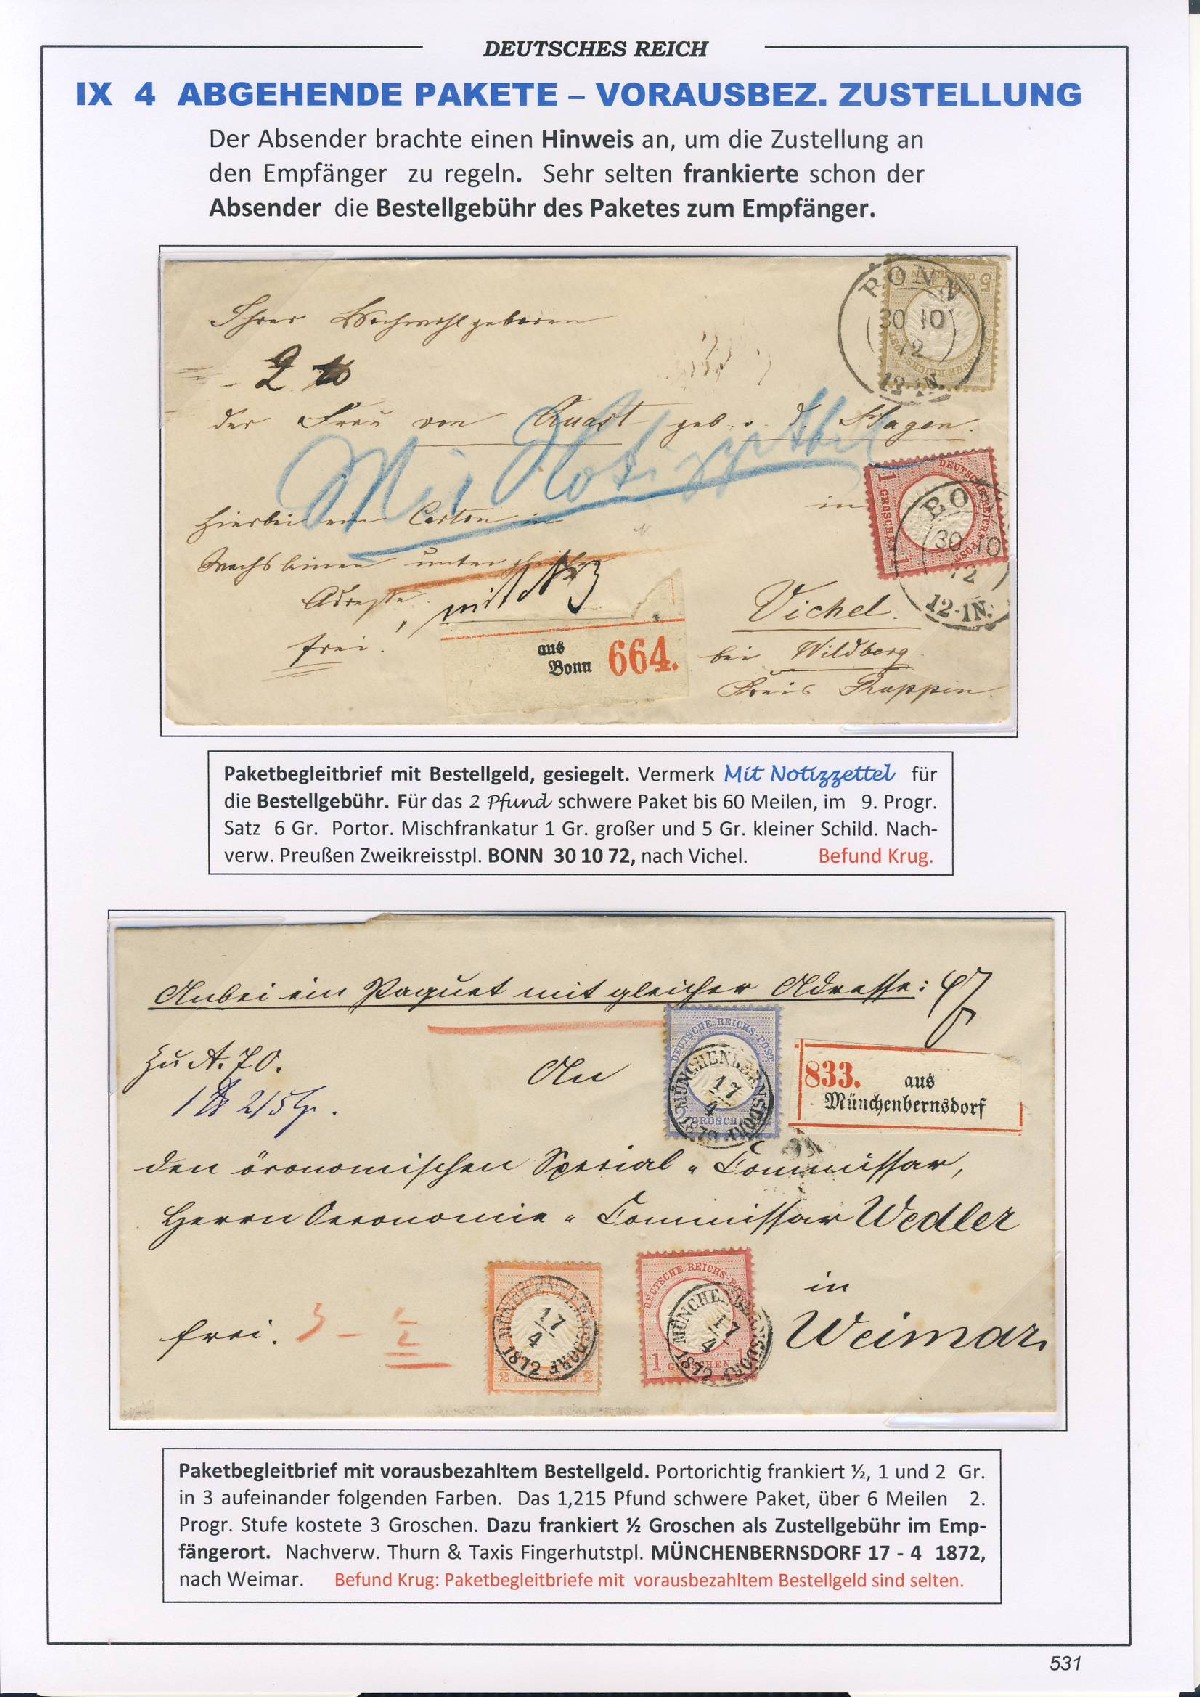 DEUTSCHES REICH
IX 4 ABGEHENDE PAKETE – VORAUSBEZ. ZUSTELLUNG
Der Absender brachte einen Hinweis an, um die Zustellung an
den Empfänger zu regeln. Sehr selten frankierte schon der
Absender die Bestellgebühr des Paketes zum Empfänger.
BONN
30 10
72
12-1N.
Ihrer Hochwohlgeboren
2
der Frau von Quast geb. v. d. Hagen.
Mit Notizzettel
1 GROSCHEN
DEUTSCHE REICHS-POST
BO
30 10
72
12-1N.
hierbei ein Carton in
in
Wachsleinen unter
Adresse
frei!
Vichel.
bei Wildberg
Kreis Ruppin
aus
Bonn 664.
Paketbegleitbrief mit Bestellgeld, gesiegelt. Vermerk Mit Notizzettel für
die Bestellgebühr. Für das 2 Pfund schwere Paket bis 60 Meilen, im 9. Progr.
Satz 6 Gr. Portor. Mischfrankatur 1 Gr. großer und 5 Gr. kleiner Schild. Nach-
verw. Preußen Zweikreisstpl. BONN 30 10 72, nach Vichel. Befund Krug.
Anbei ein Paquet mit gleicher Adresse:
Zu A. 70.
An
DEUTSCHE REICHS-POST
MÜNCHENBERNSDORF
17
4
1872
833. aus
Münchenbernsdorf
den öconomischen Special-Commissar,
Herrn Oeconomie-Commissar Wedler
in
frei.
MÜNCHENBERNSDORF
17
4
1872
DEUTSCHE REICHS-POST
MÜNCHENBERNSDORF
17
4
1872
Weimar.
Paketbegleitbrief mit vorausbezahltem Bestellgeld. Portorichtig frankiert ½, 1 und 2 Gr.
in 3 aufeinander folgenden Farben. Das 1,215 Pfund schwere Paket, über 6 Meilen 2.
Progr. Stufe kostete 3 Groschen. Dazu frankiert ½ Groschen als Zustellgebühr im Emp-
fängerort. Nachverw. Thurn & Taxis Fingerhutstpl. MÜNCHENBERNSDORF 17 - 4 1872,
nach Weimar. Befund Krug: Paketbegleitbriefe mit vorausbezahltem Bestellgeld sind selten.
531